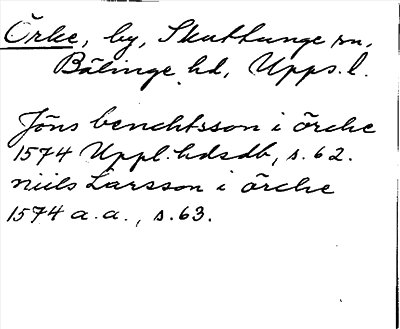 Örke, by, Skuttunge sn,
Bälinge hd, Upps. l.
Jöns benchtsson i örcke
1574 Uppl. hdsdb, s. 62.
niils Larsson i örcke
1574 a.a., s. 63.